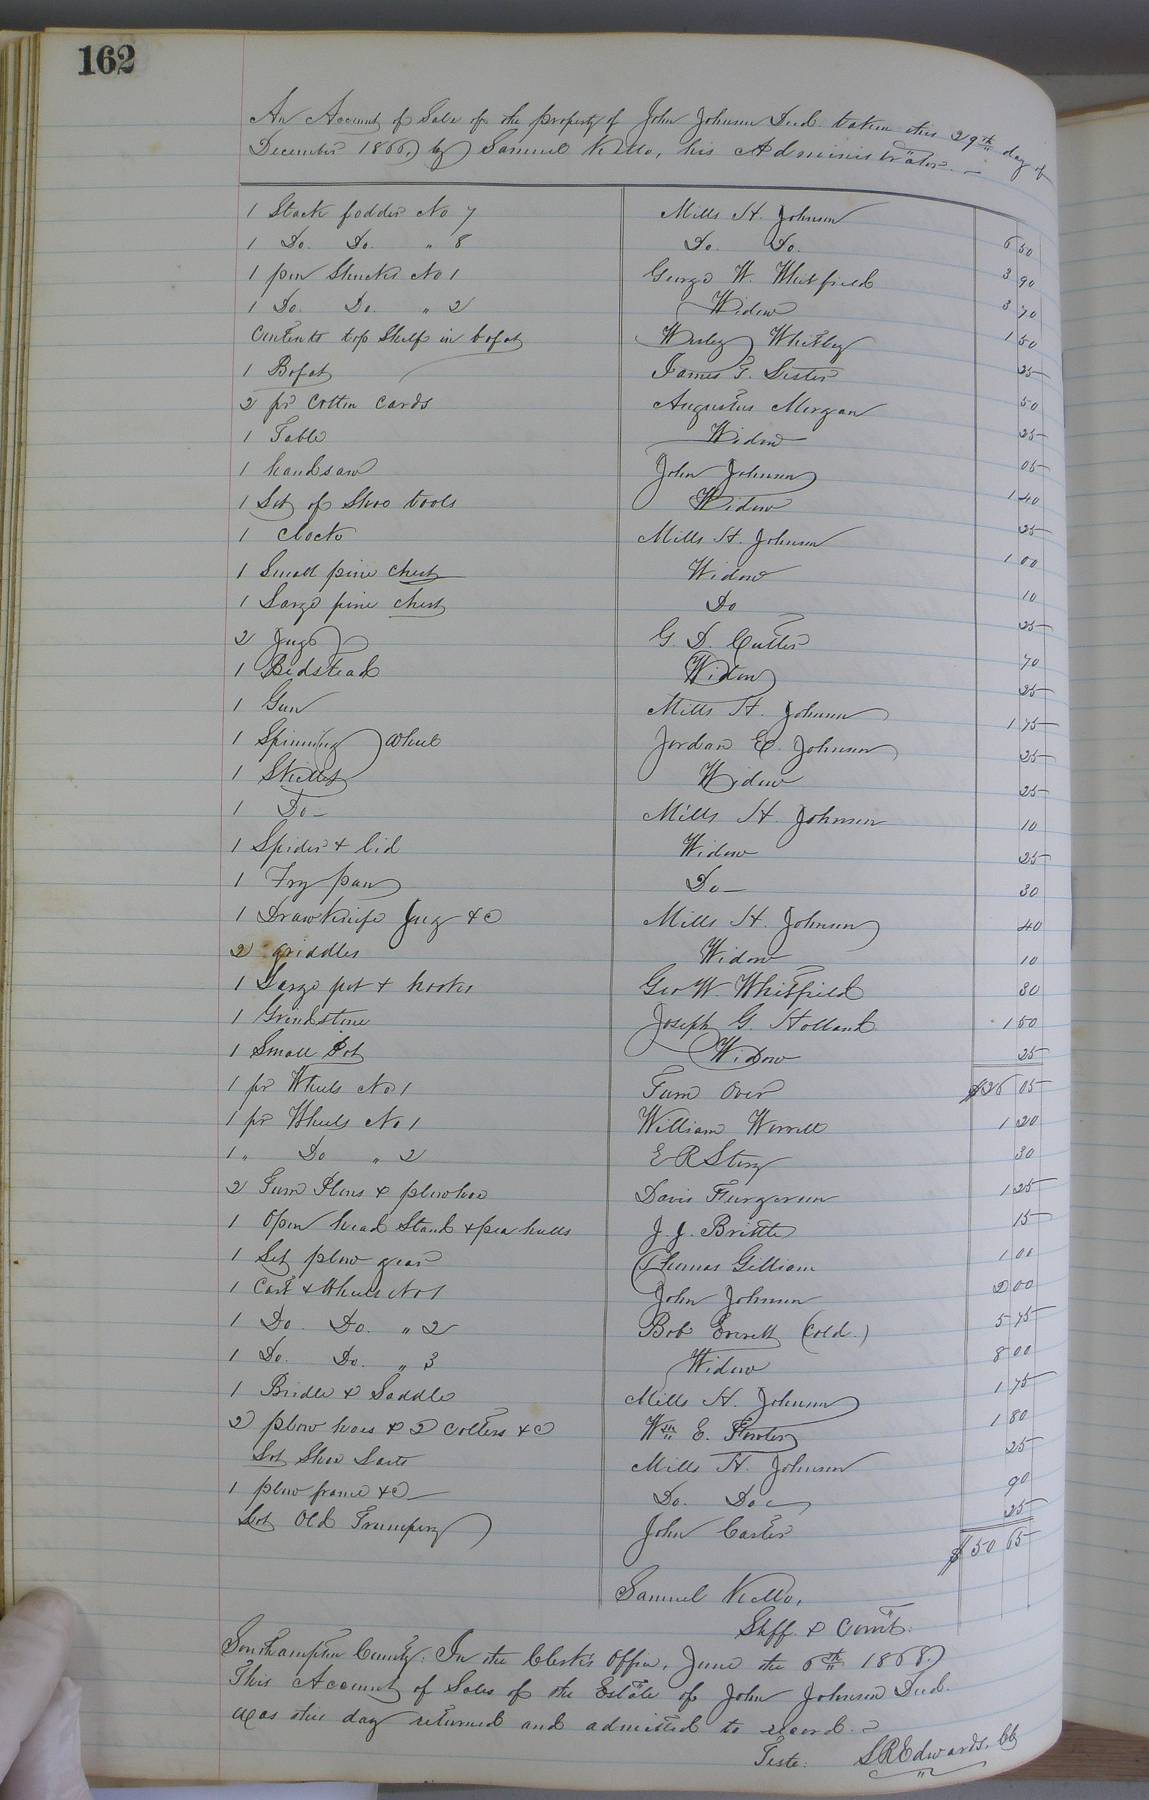 162
An Account of Sale of the property of John Johnson Decd. taken this 29th day of
December 1866, by Samuel Kello, his Administrator.
1 Stack fodder No 7 Mills H. Johnson 6 50
1 Do. Do. " 8 Do. Do. 3 90
1 pen Shucks No 1 George W. Whitfield 3 70
1 Do. Do. " 2 Widow 1 50
Contents top Shelf in bofat Wesley Whitley 25
1 Bofat James T. Lester 50
2 pr Cotton Cards Augustus Morgan 25
1 Table Widow 05
1 handsaw John Johnson 1 40
1 Set of Shoe tools Widow 25
1 Clock Mills H. Johnson 1 00
1 Small pine Chest Widow 10
1 Large pine Chest Do 25
2 Jugs G. D. Cutler 70
1 Bedstead Widow 25
1 Gun Mills H. Johnson 1 75
1 Spinning Wheel Jordan E. Johnson 25
1 Skillet Widow 25
1 Do Mills H. Johnson 10
1 Spider & lid Widow 25
1 Fry pan Do 30
1 Drawknife Jug &c Mills H. Johnson 40
2 griddles Widow 10
1 Large pot & hooks Geo W. Whitfield 80
1 Grindstone Joseph G. Holland 1 50
1 Small Pot Widow 25
1 pr Wheels No 1 Turn Over $26 05
1 pr Wheels No 1 William Worrell 1 20
1 " Do " 2 E R Story 30
2 Turn Plows & plowhoe Davis Furgerson 1 25
1 Open head Stand & pea hulls J. J. Brittle 15
1 Set plow gear Thomas Gilliam 1 00
1 Cart & Wheels No 1 John Johnson 2 00
1 Do. Do. " 2 Bob Everett (Cold.) 5 75
1 Do. Do. " 3 Widow 8 00
1 Bridle & Saddle Mills H. Johnson 1 75
2 plow hoes & 2 Colters &c Wm E. Fowler 1 80
Lot Shoe Lasts Mills H. Johnson 25
1 plow frame &c Do. Do 90
Lot Old Trumpery John Carter 25
$50 65
Samuel Kello,
Shff. & Comt.
Southampton County: In the Clerk's Office, June the 6th 1868.
This Account of Sales of the Estate of John Johnson Decd.
was this day returned and admitted to record.
Teste: L R Edwards, Clk